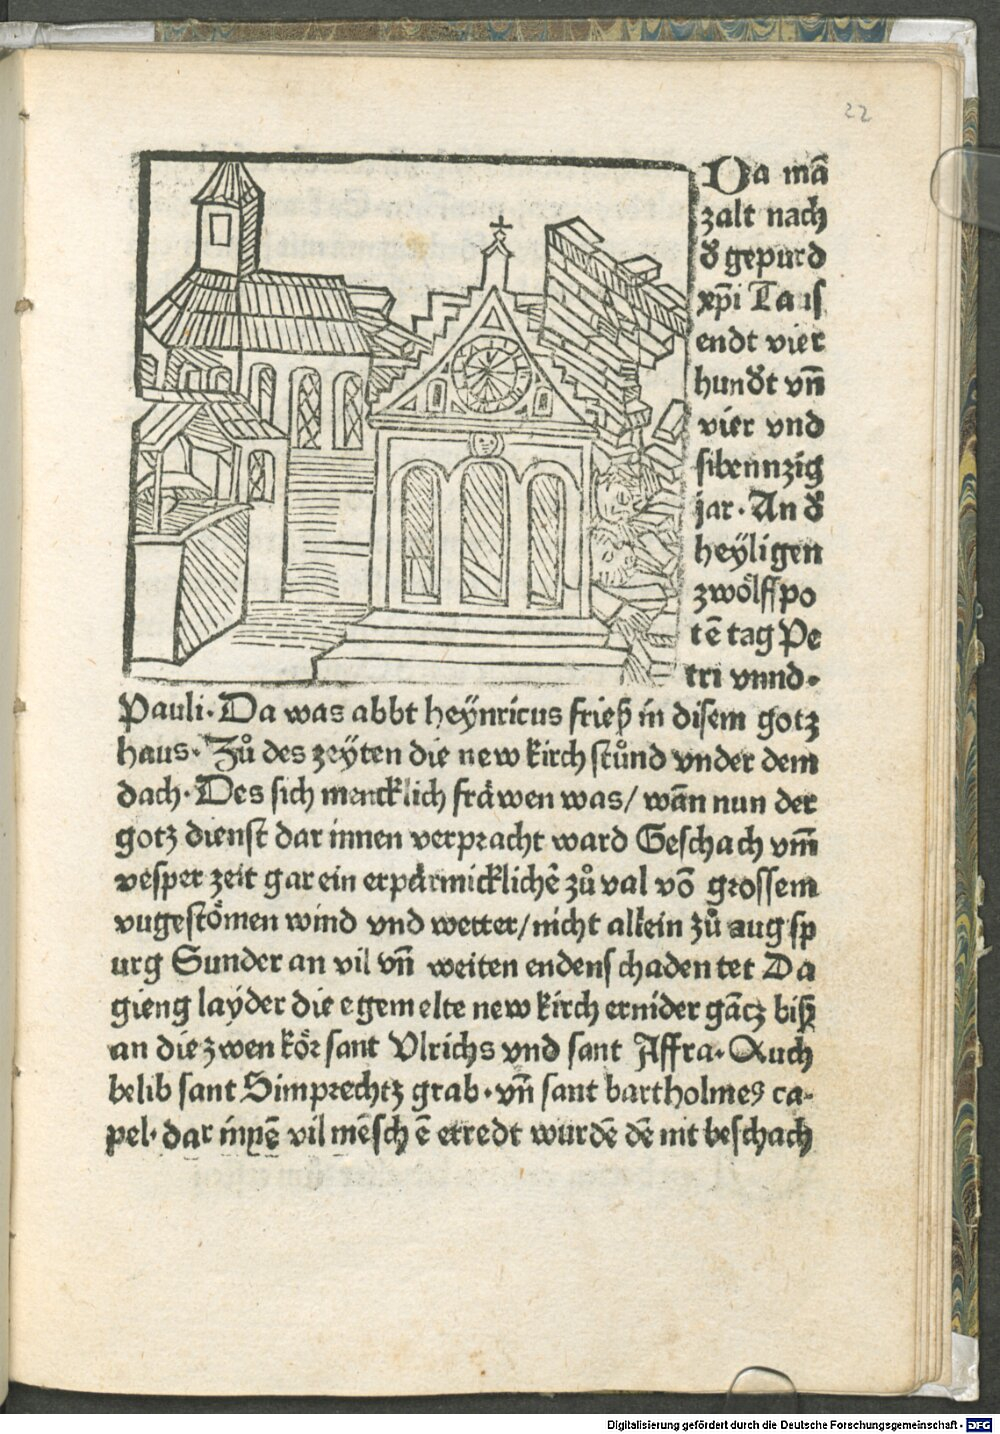 22
Da mā
zalt nach
d̕ gepurd
xp̄i Taus
endt vier
hund̕t vn̄
vier vnd
sibennzig
jar. An d̕
heÿligen
zwölffpo
tē tag Pe
tri vnnd.
Pauli. Da was abbt heÿnricus frieß in disem gotz
haus. Zů des zeÿten die new kirch stůnd vnder dem
dach. Des sich mencklich fräwen was/ wān nun der
gotz dienst dar innen verpracht ward Geschach vm̄
vesper zeit gar ein erpärmicklichē zů val vō grossem
vugestömen wind vnd wetter/ nicht allein zů augsp
urg Sunder an vil vn̄ weiten enden schaden tet Da
gieng laÿder die egemelte new kirch ernider gācz biß
an die zwen kör sant Vlrichs vnd sant Affra. Auch
belib sant Simprechtz grab. vn̄ sant bartholmeꝰ ca-
pel. dar innē vil mēschē erredt wurdē dē nit beschach
Digitalisierung gefördert durch die Deutsche Forschungsgemeinschaft - DFG